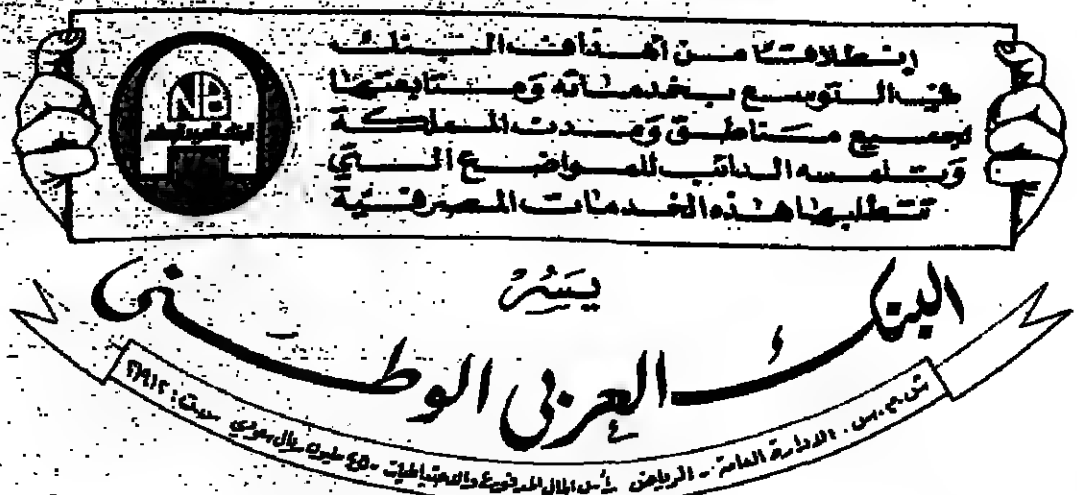 إنطلاقتا من أهداف البنك
في التوسع بخدماته ومتابعتها
بجميع مناطق ومدن المملكة
وبتلمسه الدائب للمواضع التي
تتطلبها هذه الخدمات المصرفية
NB
البنك العربي الوطني
يسر
البنك العربي الوطني
ش.م.س. الادارة العامة - الرياض رأس المال المدفوع والاحتياطيات ٤٥٠ مليون ريال سعودي س.ت: